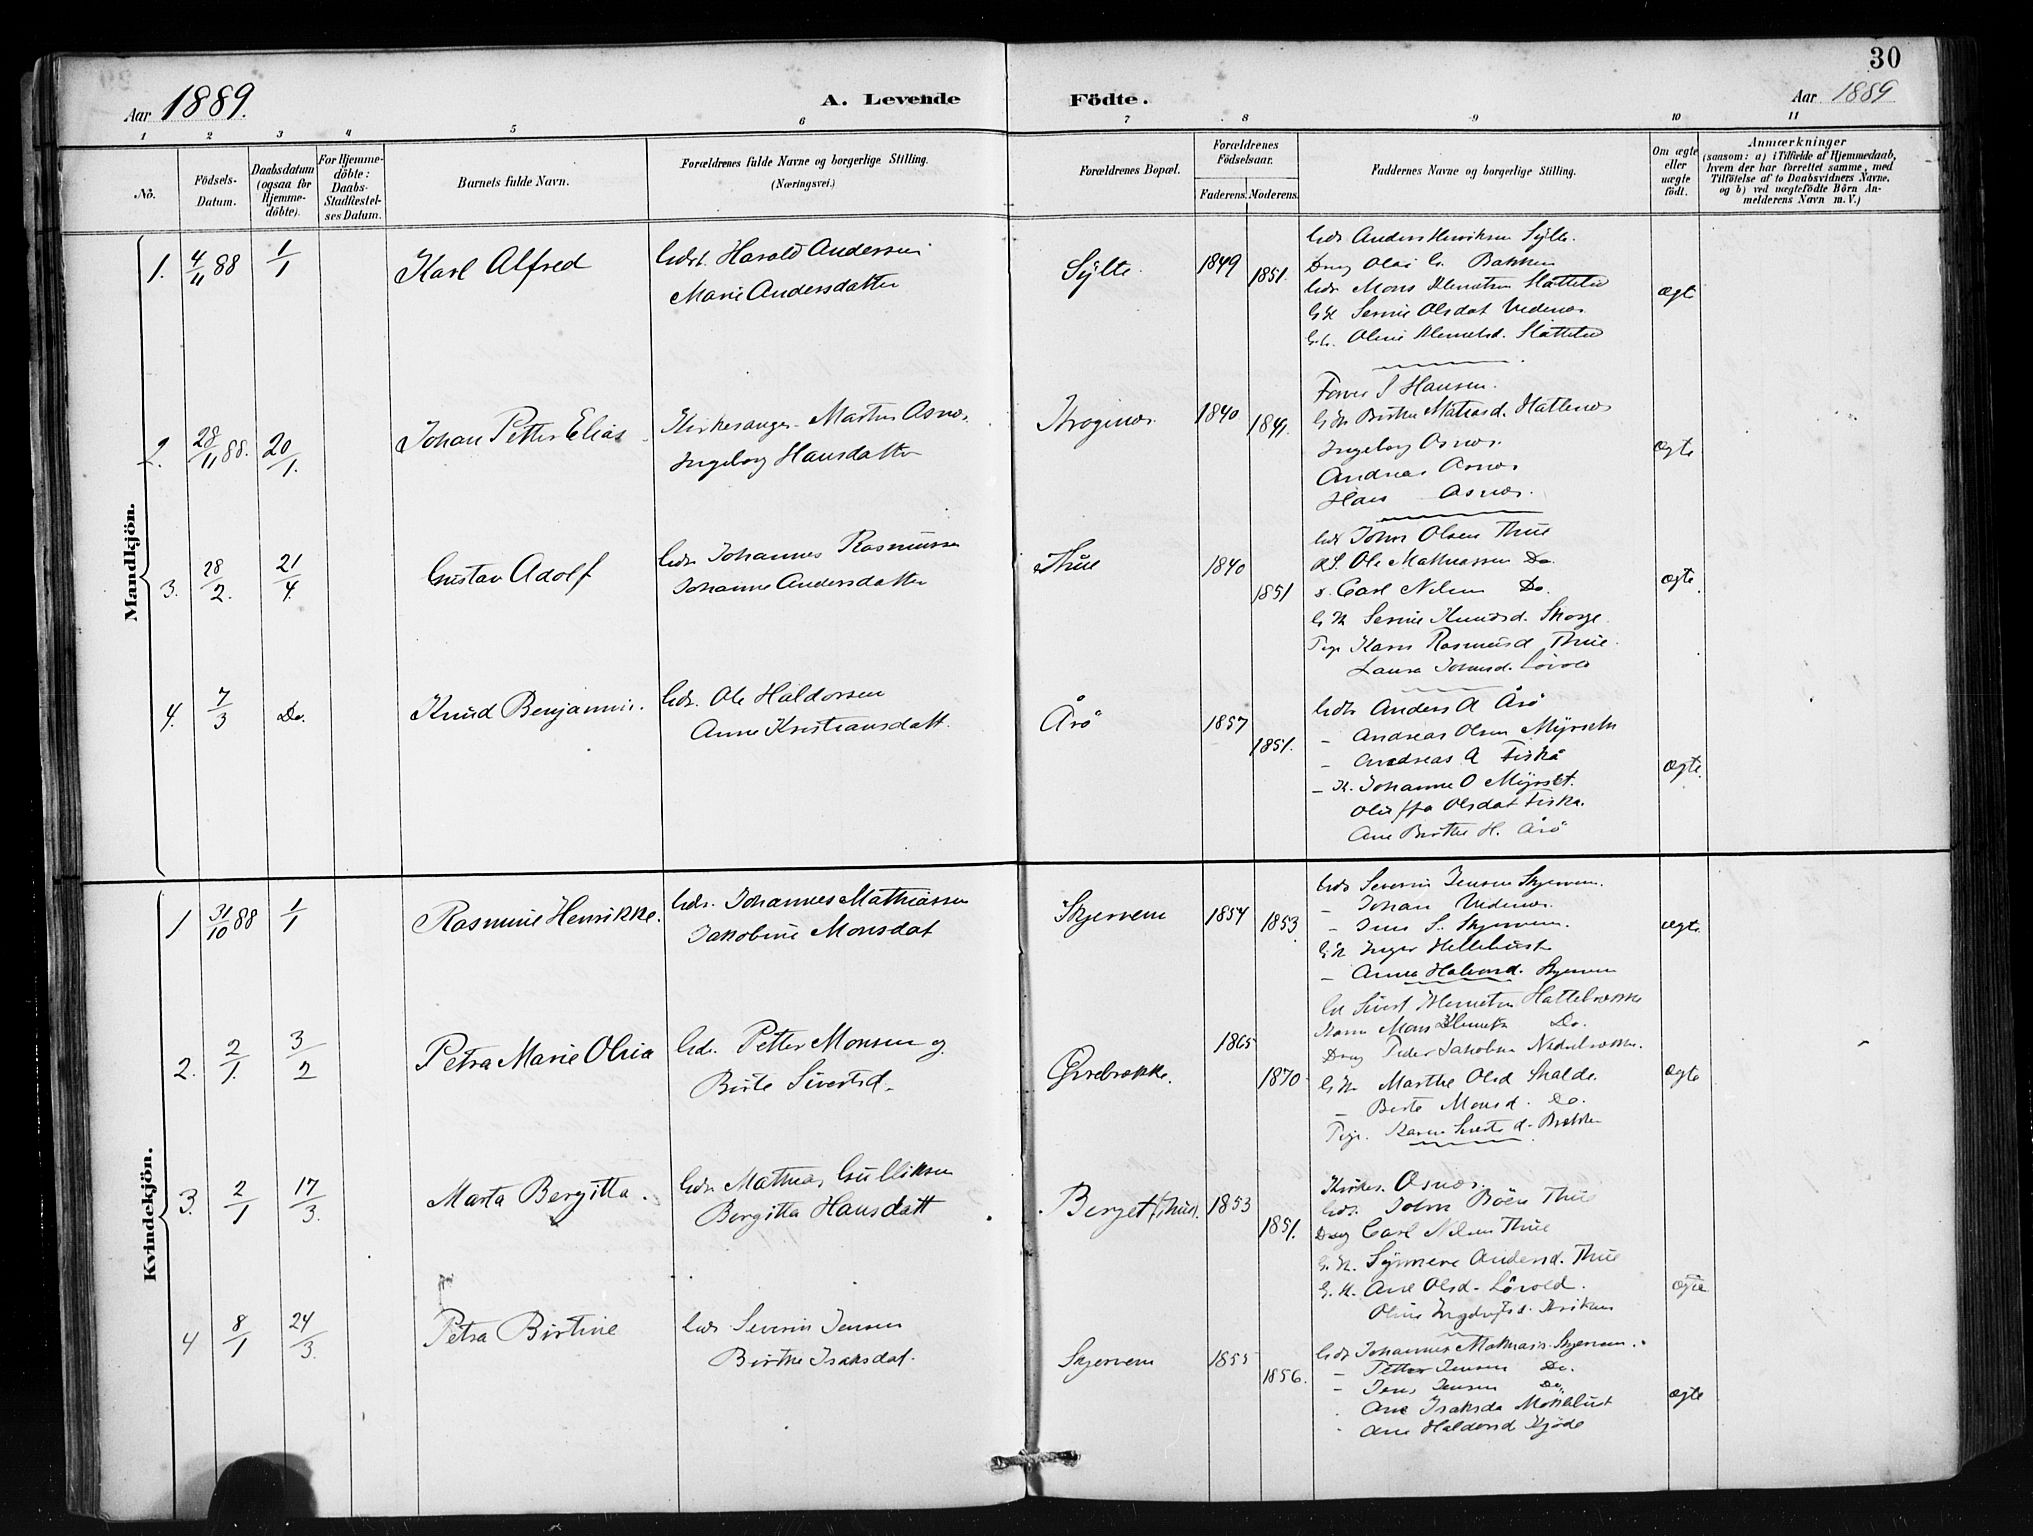 30
Aar 1889.
A. Levende Födte.
Aar 1889
1 2 3 4 5 6 7 8 9 10 11
No.
Födsels-Datum.
Daabsdatum (ogsaa for Hjemme-döbte).
For Hjemme-döbte: Daabs-Stadfæstel-ses Datum.
Barnets fulde Navn.
Forældrenes fulde Navne og borgerlige Stilling. (Næringsvei.)
Forældrenes Bopæl.
Forældrenes Födselsaar.
Faderens. Moderens.
Faddernes Navne og borgerlige Stilling.
Om ægte eller uægte födt.
Anmærkninger
(saasom: a) i Tilfælde af Hjemmedaab, hvem der har forrettet samme, med Tilföielse af to Daabsvidners Navne, og b) ved uægtefödte Börn An-melderens Navn m. V.)
Mandkjön.
1. 4/11 88 1/1 Karl Alfred
Gdr. Harald Andersen
Marie Andersdatter
Sylte. 1849 1851.
Gdr Anders Henriksen Sylte.
Drug Olai G. Bakken
Gdr Mons Klemetsen Slattelid
GK Serine Olsdat Vedenæs
Gk. Oline Klemetsd. Slattelid
ægte
2. 28/11 88. 20/1. Johan Petter Elias
Kirkesanger Martin Osnæs
Ingeborg Hansdatter
Krogenæs 1840 1849.
S Hansen.
GK Birthe Matiasd. Hattenæs
Ingeborg Osnæs.
Andreas Osnæs
Hans Osnæs.
ægte
3. 28/2. 21/4. Gustav Adolf
Gdr Johannes Rasmussen
Johanne Andersdatter
Thue 1840 1851
Gdr John Olsen Thue
Ole Mathiassen Do
Carl Nilsen Do.
GK Serine Knudsd. Skorge.
Pige Karen Rasmusd Thue.
Laura Johnsd. Lövold
ægte.
4. 7/3 Do. Knud Benjamin.
Gdr. Ole Haldorsen
Anne Kristiansdatt.
Årö 1857 1851.
Gdr Anders A Årö
- Andreas Olsen Myrseth
- Andreas A Fiskå
- K. Johanne O Myrset.
Oluffa Olsdat Fiska.
Ane Birthe H. Årö
ægte.
Kvindekjön.
1 31/10 88 1/1 Rasmine Henrikke.
Gdr. Johannes Mathiassen
Jakobine Monsdat
Skjervene 1854 1853.
Gdr Severin Jensen Skjervem.
- Johan Vedenæs.
- Jens S. Skjervem.
GK Inger Hellehust
- Anna Halvord. Skjervem
ægte.
2. 2/1. 3/2 Petra Marie Olivia
Gdr. Petter Monsen og
Birte Sivertsd.
Övrebrække. 1865 1870
Sivert Klemetsen Hattebrække
Mons Klemetsen Do.
Drug Peder Jakobsen Nedrebrække.
GK Marthe Olsd Skalde.
- Berte Monsd. Do.
Pige. Karen Sivertsd. Brække
ægte
3. 2/1 17/3. Marta Bergitta.
Gdr Mathias Gulliksen
Bergitta Hansdatt
Berget Thue. 1853 1851.
Kirkes. Osnæs.
Gdr. John Böen Thue
Drug Carl Nilsen Thue
G.K. Synneve Andersd. Thue
G.K. Ane Olsd. Lövold.
ægte
4 8/1 24/3. Petra Birtine
Gdr Severin Jensen
Birthe Isaksdat.
Skjervem 1855 1856.
Gdr Johannes Mathias. Skjervem.
- Petter Jensen Do.
- Jens Jensen Do.
Ane Isaksda Möklebust
Ane Haldorsd Kjöde
ægte